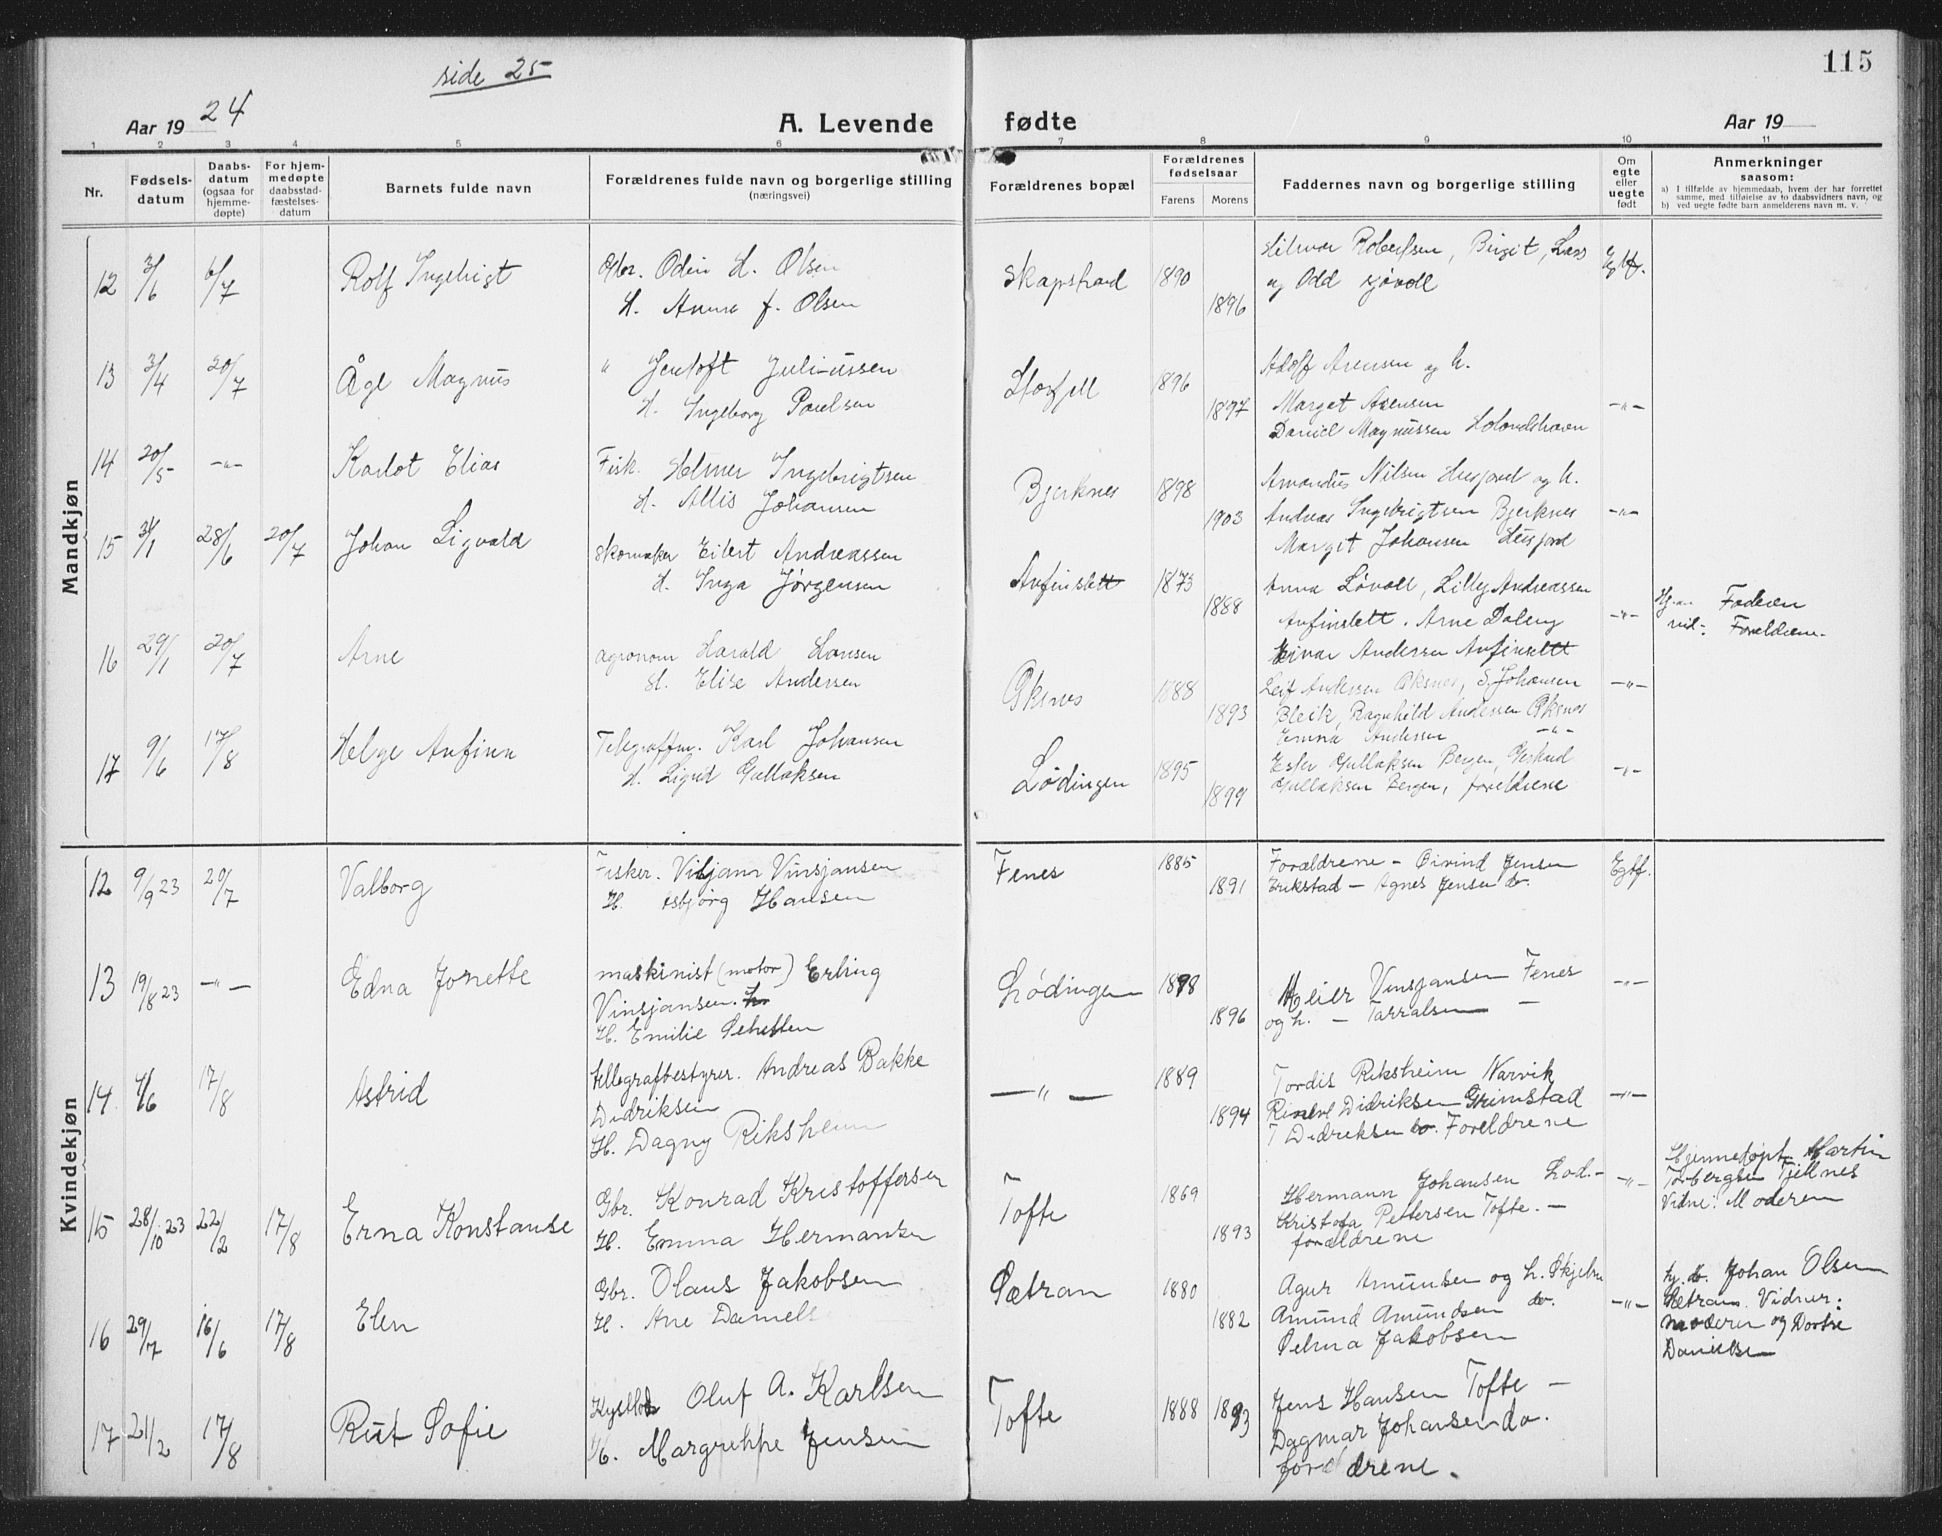 side 25
115
Aar 1924
A. Levende fødte
Aar 19
1 2 3 4 5 6 7 8 9 10 11
Nr.
Fødsels-
datum
Daabs-
datum
(ogsaa for
hjemme-
døpte)
For hjem-
medøpte
daabsstad-
fæstelses-
datum
Barnets fulde navn
Forældrenes fulde navn og borgerlige stilling
(næringsvei)
Forældrenes bopæl
Forældrenes
fødselsaar
Farens Morens
Faddernes navn og borgerlige stilling
Om
egte
eller
uegte
født
Anmerkninger
saasom:
a) I tilfælde av hjemmedaab, hvem der har forrettet
samme, med tilføielse av to daabsvidners navn, og
b) ved uegte fødte barn anmelderens navn m. v.
Mandkjøn
12 3/6 6/7 Rolf Ingebrigt
Gbr. Odin H. Olsen
H. Anna J. Olsen
Skapstrand 1890 1896
Hilmar Robertsen, Birgit, Lars
og Odd
Egtf.
13 3/4 20/7 Åge Magnus
" Jentoft Juliussen
H. Ingeborg Paulsen
Storfjell 1896 1897
Adolf Arensen og h.
Marget Arensen
Daniel Magnussen Holandshavn
-"-
14 20/5 -"- Karlot Elias
Fisk. Helmer Ingebrigtsen
H. Allis Johansen
Bjerknes 1898 1903
Amandus Nilsen Husfjord og h.
Andreas Ingebrigtsen Bjerknes
Margit Johansen Husfjord
-"-
15 31/1 28/6 20/7 Johan Sigvald
Skomaker Eilert Andreassen
H. Inga Jørgensen
Anfinslett 1873 1888
Anna Løvoll, Lilly Andreassen
Anfinslett. Arne Daleng
Einar Andersen Anfinslett
-"-
Faderen
vid: Foreldrene
16 29/1 20/7 Arne
agronom Harald Hansen
H. Elise Andersen
Øksnes 1888 1893
Leif Andersen Øksnes, S. Johansen
Bleik, Ragnhild Andersen Øksnes
Emma Andersen -"-
-"-
17 9/6 17/8 Helge Anfinn
Telegraffm. Karl Johansen
H. Sigrid Gullaksen
Lødingen 1895 1899
Ester Gullaksen Bergen, Gerhard
Gullaksen Bergen, foreldrene
-"-
Kvindekjøn
12 9/9 23 20/7 Valborg
Fisker. Viljam Vinsjansen
H. Asbjørg Hansen
Fenes 1885 1891
Forældrene - Øivind Jensen
Erikstad - Agnes Jensen do.
Egtf.
13 19/8 23 -"- Edna Jonette
maskinist (motor) Erling
Vinsjansen.
H. Emilie
Lødingen 1898 1896
Meier Vinsjansen Fenes
og h. - Tarralsen -
-"-
14 4/6 17/8 Astrid
tellegrafbestyrer. Andreas Bakke
Didriksen
H. Dagny Riksheim
-"- 1889 1894
Tordis Riksheim Narvik
Didriksen Grimstad
T Didreksen do. Foreldrene
-"-
15 28/10 23 22/2 17/8 Erna Konstanse
Gbr. Konrad Kristoffersen
H. Emma Hermansen
Tofte 1869 1893
Hermann Johansen Lød.-
Kristofa Pettersen Tofte. -
forældrene
-"-
Hjemmedøpt Martin
Torbergsen Tjellnes
Vidne: Moderen
16 29/7 16/6 17/8 Elen
Gbr. Olaus Jakobsen
H. Ane Daniels
Sætran 1880 1882
Agur Amundsen og h.
Amund Amundsen do.
Selma Jakobsen
-"-
hj. d. Johan Olsen
Sætran. Vidner:
moderen og Dorthe
Danielsen
17 21/2 17/8 Rut Sofie
Oluf A. Karlsen
H. Margrethe Jensen
Tofte 1888 1893
Jens Hansen Tofte -
Dagmar Johansen do.
foreldrene.